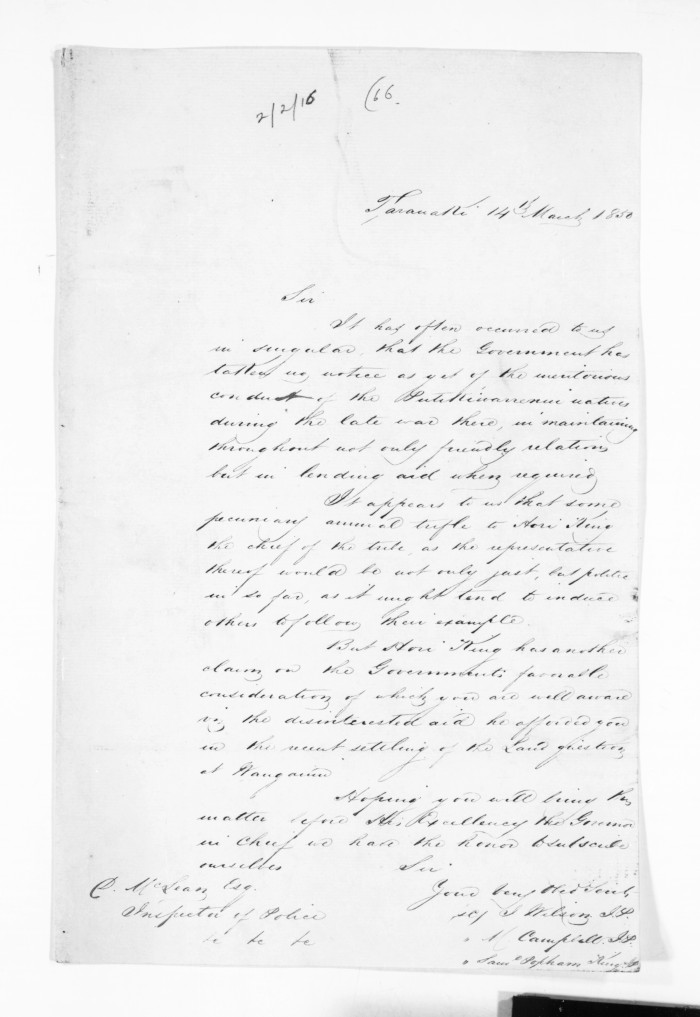 2/2/16 (66.
Taranaki 14th March 1850
Sir
It has often occurred to us
in singular, that the Government has
taken no notice as yet of the meritorious
conduct of the natives
during the late war there, in maintaining
throughout not only friendly relations
but in lending aid when required
It appears to us that some
pecuniary annual trifle to Hori King
the chief of the tribe, as the representative
thereof would be not only just, but politic
in so far, as it might tend to induce
others to follow their example.
But Hori King has another
claim on the Governments favorable
consideration of which you are well aware
viz the disinterested aid he afforded you
in the recent settling of the Land question
at Wanganui
Hoping you will bring this
matter before His Excellency the Governor
in Chief we have the honor to subscribe
ourselves Sir
D. McLean Esq. Your very Obed Servts
Inspector of Police J Wilson J.P.
&c &c &c " M Campbell. J.P.
" Saml Popham King J.P.